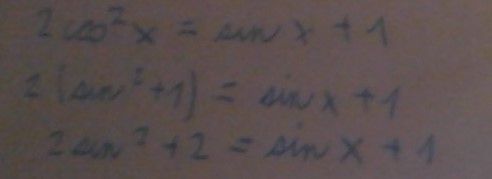 2cos²x = sin x + 1
2(sin²+1) = sin x + 1
2sin²+2 = sin x + 1